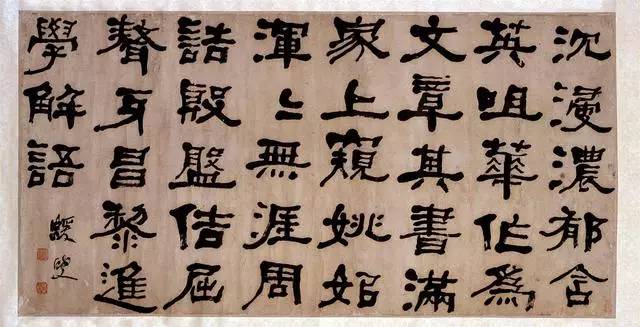 沈濅濃郁含
英咀華作為
文章其書滿
家上窺姚姒
渾〻無涯周
誥殷盤佶屈
聱牙昌黎進
學解語
蝯叟